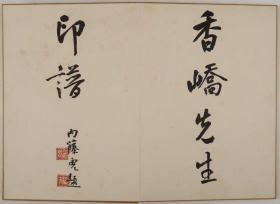 香嶠先生
印譜
内藤虎題